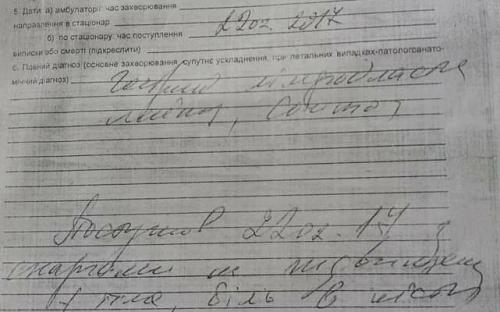 5. Дати: а) амбулаторії: час захворювання
направлення в стаціонар
б) по стаціонару: час поступлення 22 02. 2017
виписки або смерті (підкреслити)
6. Повний діагноз (основне захворювання, супутнє ускладнення, при летальних випадках-патологоанато-
мічний діагноз) Гострий
Поступив 22 02. 17
скаргами на
тіла, біль в